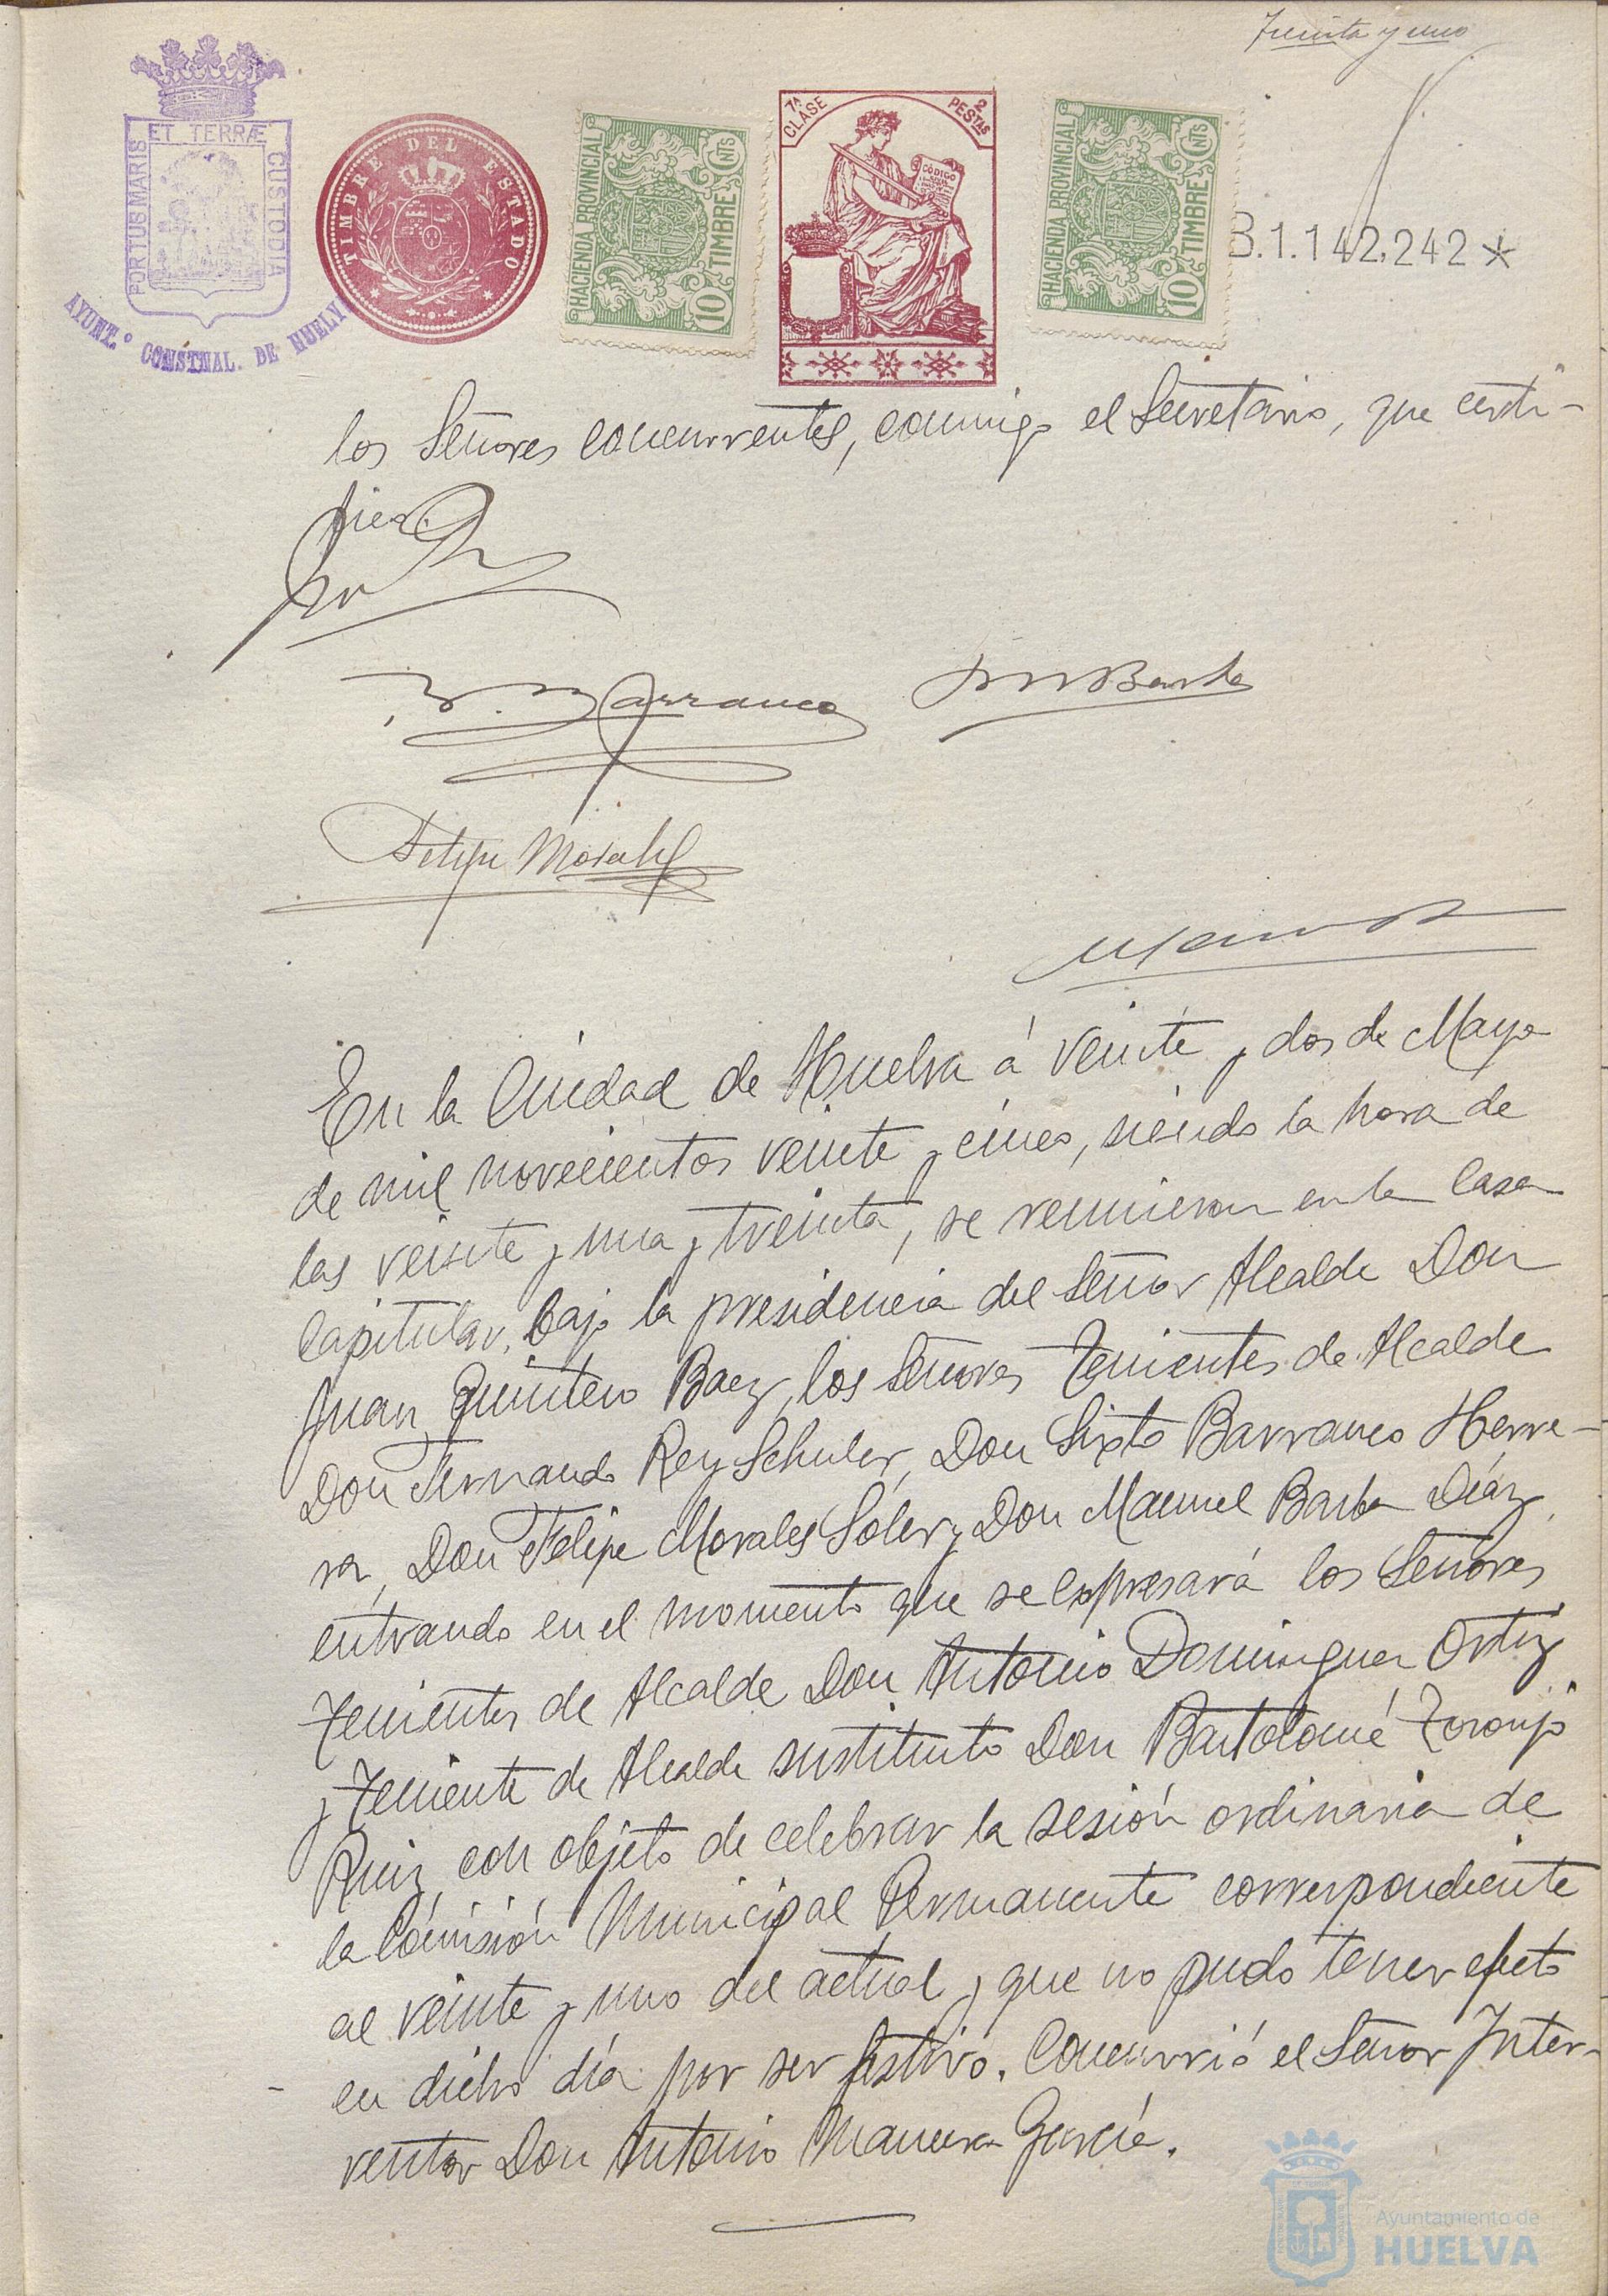 Treinta y uno
ET TERRÆ
PORTUS MARIS
CUSTODIA
AYUNT.º CONSTNAL. DE HUELV
TIMBRE DEL ESTADO
HACIENDA PROVINCIAL
10 TIMBRE CNTS
7ª CLASE
2 PESTAS
CÓDIGO
HACIENDA PROVINCIAL
10 TIMBRE CNTS
B.1.142,242*
los Señores concurrentes, conmigo el Secretario, que certi-
fico.
S. Barranco
M Barba
Felipe Morales
En la Ciudad de Huelva á veinte y dos de Mayo
de mil novecientos veinte y cinco, siendo la hora de
las veinte y una y treinta, se reunieron en la Casa
Capitular, bajo la presidencia del Señor Alcalde Don
Juan Quintero Baez, los Señores Tenientes de Alcalde
Don Fernando Rey Schuler, Don Sixto Barranco Herre-
ra, Don Felipe Morales Soler y Don Manuel Barba Díaz,
entrando en el momento que se expresará los Señores
Tenientes de Alcalde Don Antonio Dominguez Ortiz
y Teniente de Alcalde sustituto Don Bartolomé Toronjo
Ruiz con objeto de celebrar la sesión ordinaria de
la Comisión Municipal Permanente correspondiente
al veinte y uno del actual y que no pudo tener efecto
en dicho día por ser festivo. Concurrió el Señor Inter-
ventor Don Antonio Manuera García.
Ayuntamiento de
HUELVA